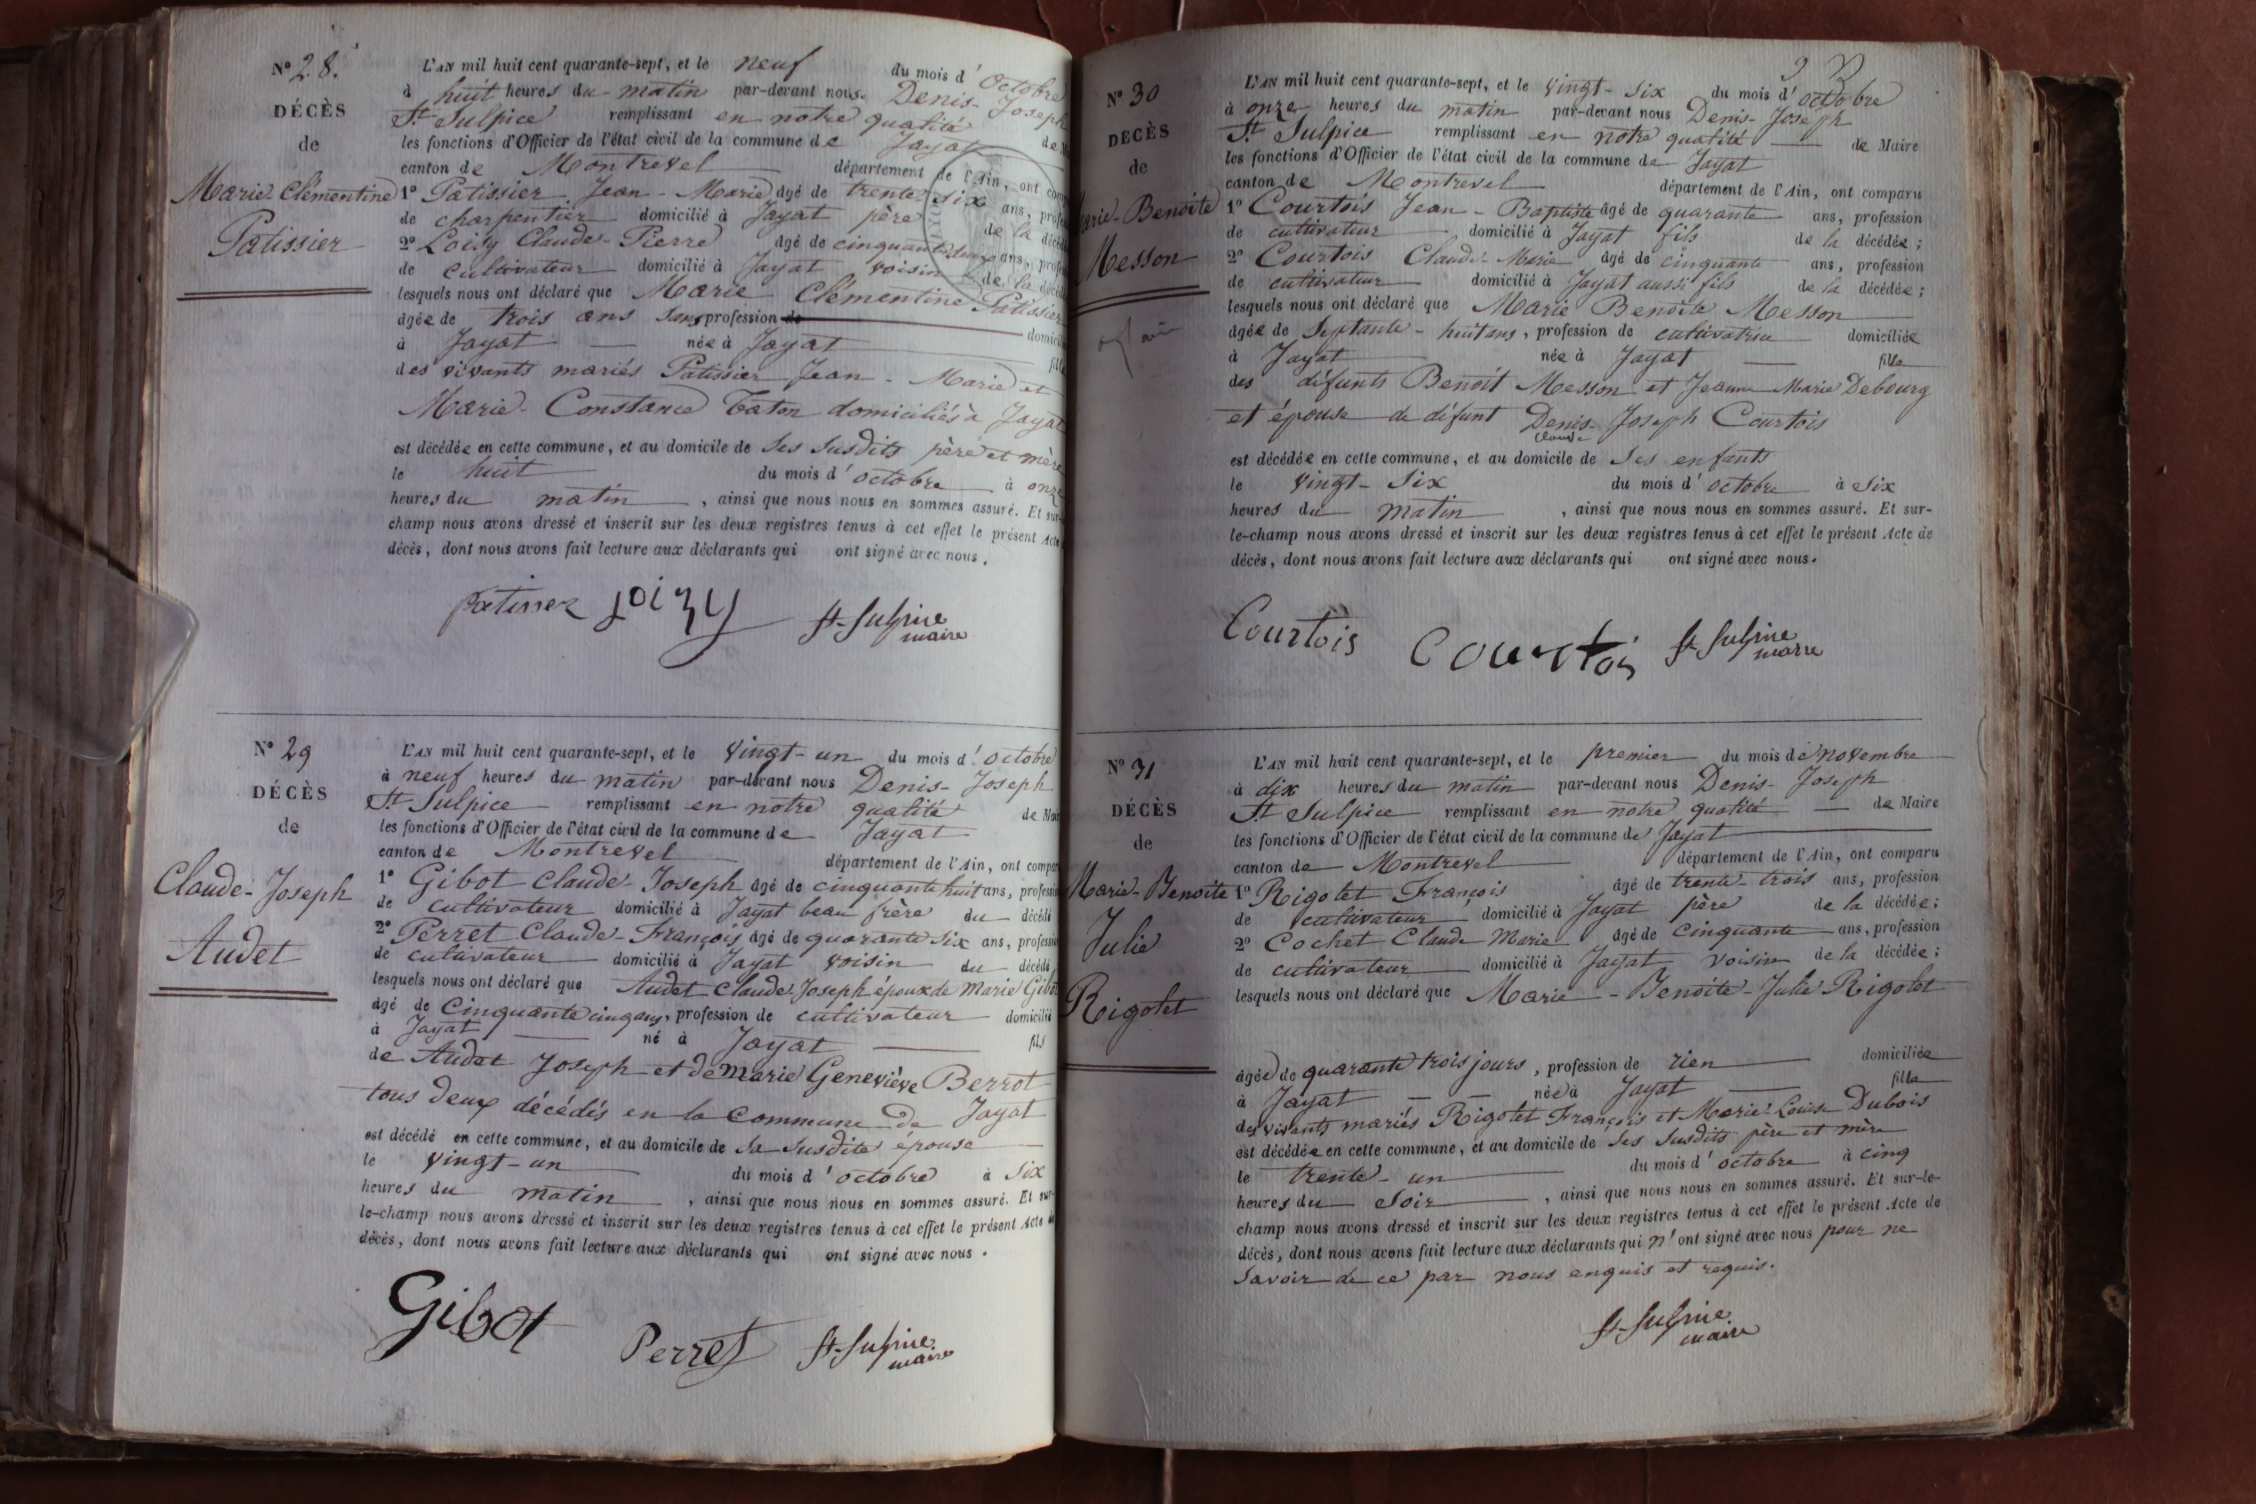 N° 28.
DÉCÈS
de
Marie Clémentine
Patissier
L'AN mil huit cent quarante-sept, et le neuf du mois d'octobre
à huit heures du matin par-devant nous Denis-Joseph
St Sulpice remplissant en notre qualité de
les fonctions d'Officier de l'état civil de la commune de Jayat
canton de Montrevel département de l'Ain, ont
1° Patissier Jean-Marie âgé de trente-six ans,
de charpentier domicilié à Jayat père de la
2° Loisy Claude-Pierre âgé de cinquante deux ans,
de cultivateur domicilié à Jayat voisin de la
lesquels nous ont déclaré que Marie Clémentine Patissier
âgée de trois ans sans profession de
à Jayat née à Jayat
des vivants mariés Patissier Jean-Marie et
Marie-Constance Taton domiciliés à Jayat
est décédée en cette commune, et au domicile de ses susdits père et mère
le huit du mois d'octobre à onze
heures du matin, ainsi que nous nous en sommes assuré. Et sur-
champ nous avons dressé et inscrit sur les deux registres tenus à cet effet le présent Acte
décès, dont nous avons fait lecture aux déclarants qui ont signé avec nous.
patissier Loizy St-Sulpice
maire
N° 29
DÉCÈS
de
Claude-Joseph
Audet
L'AN mil huit cent quarante-sept, et le vingt-un du mois d'octobre
à neuf heures du matin par-devant nous Denis-Joseph
St Sulpice remplissant en notre qualité de
les fonctions d'Officier de l'état civil de la commune de Jayat
canton de Montrevel département de l'Ain, ont
1° Gibot Claude-Joseph âgé de cinquante huit ans,
de cultivateur domicilié à Jayat beau frère du décédé
2° Perret Claude-François âgé de quarante six ans,
de cultivateur domicilié à Jayat voisin du décédé
lesquels nous ont déclaré que Audet Claude Joseph époux de Marie Gibot
âgé de cinquante cinq ans, profession de cultivateur domicilié
à Jayat né à Jayat fils
de Audet Joseph et de Marie Geneviève Berrot
tous deux décédés en la commune de Jayat
est décédé en cette commune, et au domicile de sa susdite épouse
le vingt-un du mois d'octobre à six
heures du matin, ainsi que nous nous en sommes assuré. Et sur-
le-champ nous avons dressé et inscrit sur les deux registres tenus à cet effet le présent Acte de
décès, dont nous avons fait lecture aux déclarants qui ont signé avec nous.
Gibot Perret St-Sulpice
maire
N° 30
DÉCÈS
de
Marie-Benoite
Messon
L'AN mil huit cent quarante-sept, et le vingt-six du mois d'octobre
à onze heures du matin par-devant nous Denis-Joseph
St Sulpice remplissant en notre qualité de Maire
les fonctions d'Officier de l'état civil de la commune de Jayat
canton de Montrevel département de l'Ain, ont comparu
1° Courtois Jean-Baptiste âgé de quarante ans, profession
de cultivateur domicilié à Jayat fils de la décédée;
2° Courtois Claude-Marie âgé de cinquante ans, profession
de cultivateur domicilié à Jayat aussi fils de la décédée;
lesquels nous ont déclaré que Marie Benoite Messon
âgée de septante-huit ans, profession de cultivatrice domiciliée
à Jayat née à Jayat fille
des défunts Benoit Messon et Jeanne Marie Debourg
et épouse de défunt Denis-Joseph Courtois
Claude
est décédée en cette commune, et au domicile de ses enfants
le vingt-six du mois d'octobre à six
heures du matin, ainsi que nous nous en sommes assuré. Et sur-
le-champ nous avons dressé et inscrit sur les deux registres tenus à cet effet le présent Acte de
décès, dont nous avons fait lecture aux déclarants qui ont signé avec nous.
Courtois Courtois St-Sulpice
maire
N° 31
DÉCÈS
de
Marie-Benoite
Julie
Rigolet
L'AN mil huit cent quarante-sept, et le premier du mois de novembre
à dix heures du matin par-devant nous Denis-Joseph
St Sulpice remplissant en notre qualité de Maire
les fonctions d'Officier de l'état civil de la commune de Jayat
canton de Montrevel département de l'Ain, ont comparu
1° Rigolet François âgé de trente-trois ans, profession
de cultivateur domicilié à Jayat père de la décédée;
2° Cochet Claude Marie âgé de cinquante ans, profession
de cultivateur domicilié à Jayat voisin de la décédée;
lesquels nous ont déclaré que Marie-Benoite-Julie Rigolet
âgée de quarante trois jours, profession de rien domiciliée
à Jayat née à Jayat fille
des vivants mariés Rigolet François et Marie-Louise Dubois
est décédée en cette commune, et au domicile de ses susdits père et mère
le trente-un du mois d'octobre à cinq
heures du soir, ainsi que nous nous en sommes assuré. Et sur-le-
champ nous avons dressé et inscrit sur les deux registres tenus à cet effet le présent Acte de
décès, dont nous avons fait lecture aux déclarants qui n'ont signé avec nous pour ne
savoir de ce par nous enquis et requis.
St-Sulpice
maire